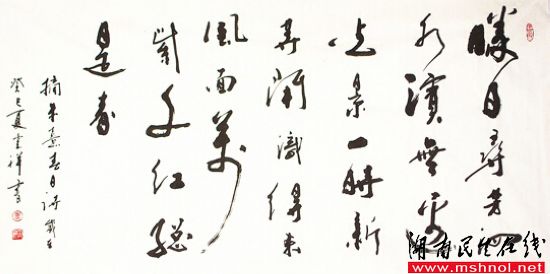 勝日尋芳泗
水濱無邊
光景一時新
等閒識得東
風面萬
紫千紅總
是春
摘朱熹春日詩
癸巳夏祥書
湖南民生在线
www.mshnol.net